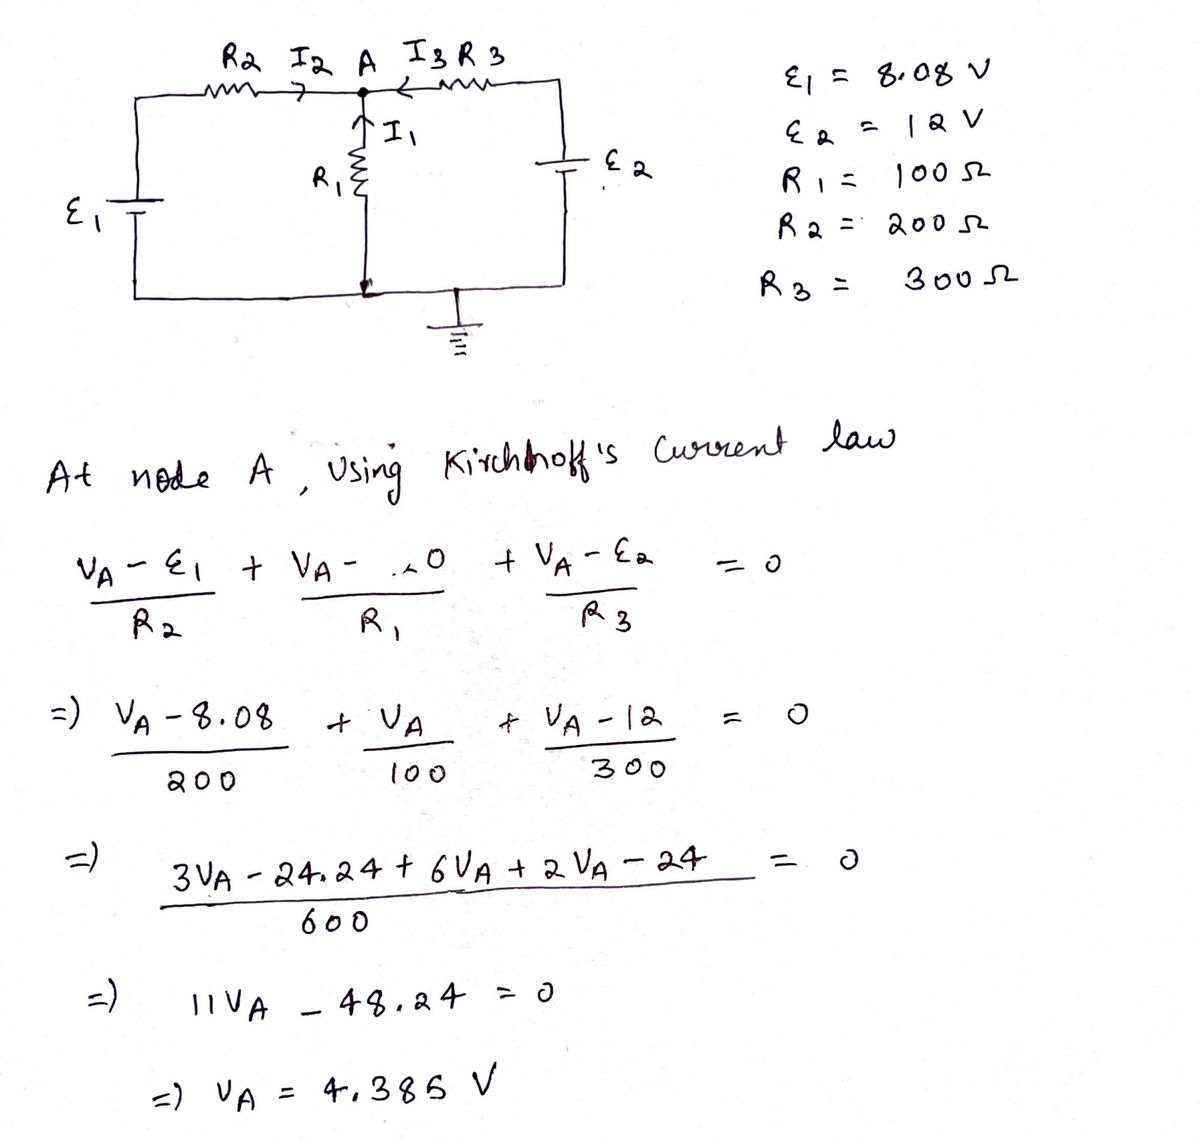 R2 I2 A I3 R3
I1
R1
ε1
ε2
ε1 = 8.08 V
ε2 = 12 V
R1 = 100 Ω
R2 = 200 Ω
R3 = 300 Ω
At node A, Using Kirchhoff's Current law
(VA - ε1)/R2 + (VA - 0)/R1 + (VA - ε2)/R3 = 0
=) (VA - 8.08)/200 + VA/100 + (VA - 12)/300 = 0
=) (3VA - 24.24 + 6VA + 2VA - 24)/600 = 0
=) 11VA - 48.24 = 0
=) VA = 4.385 V